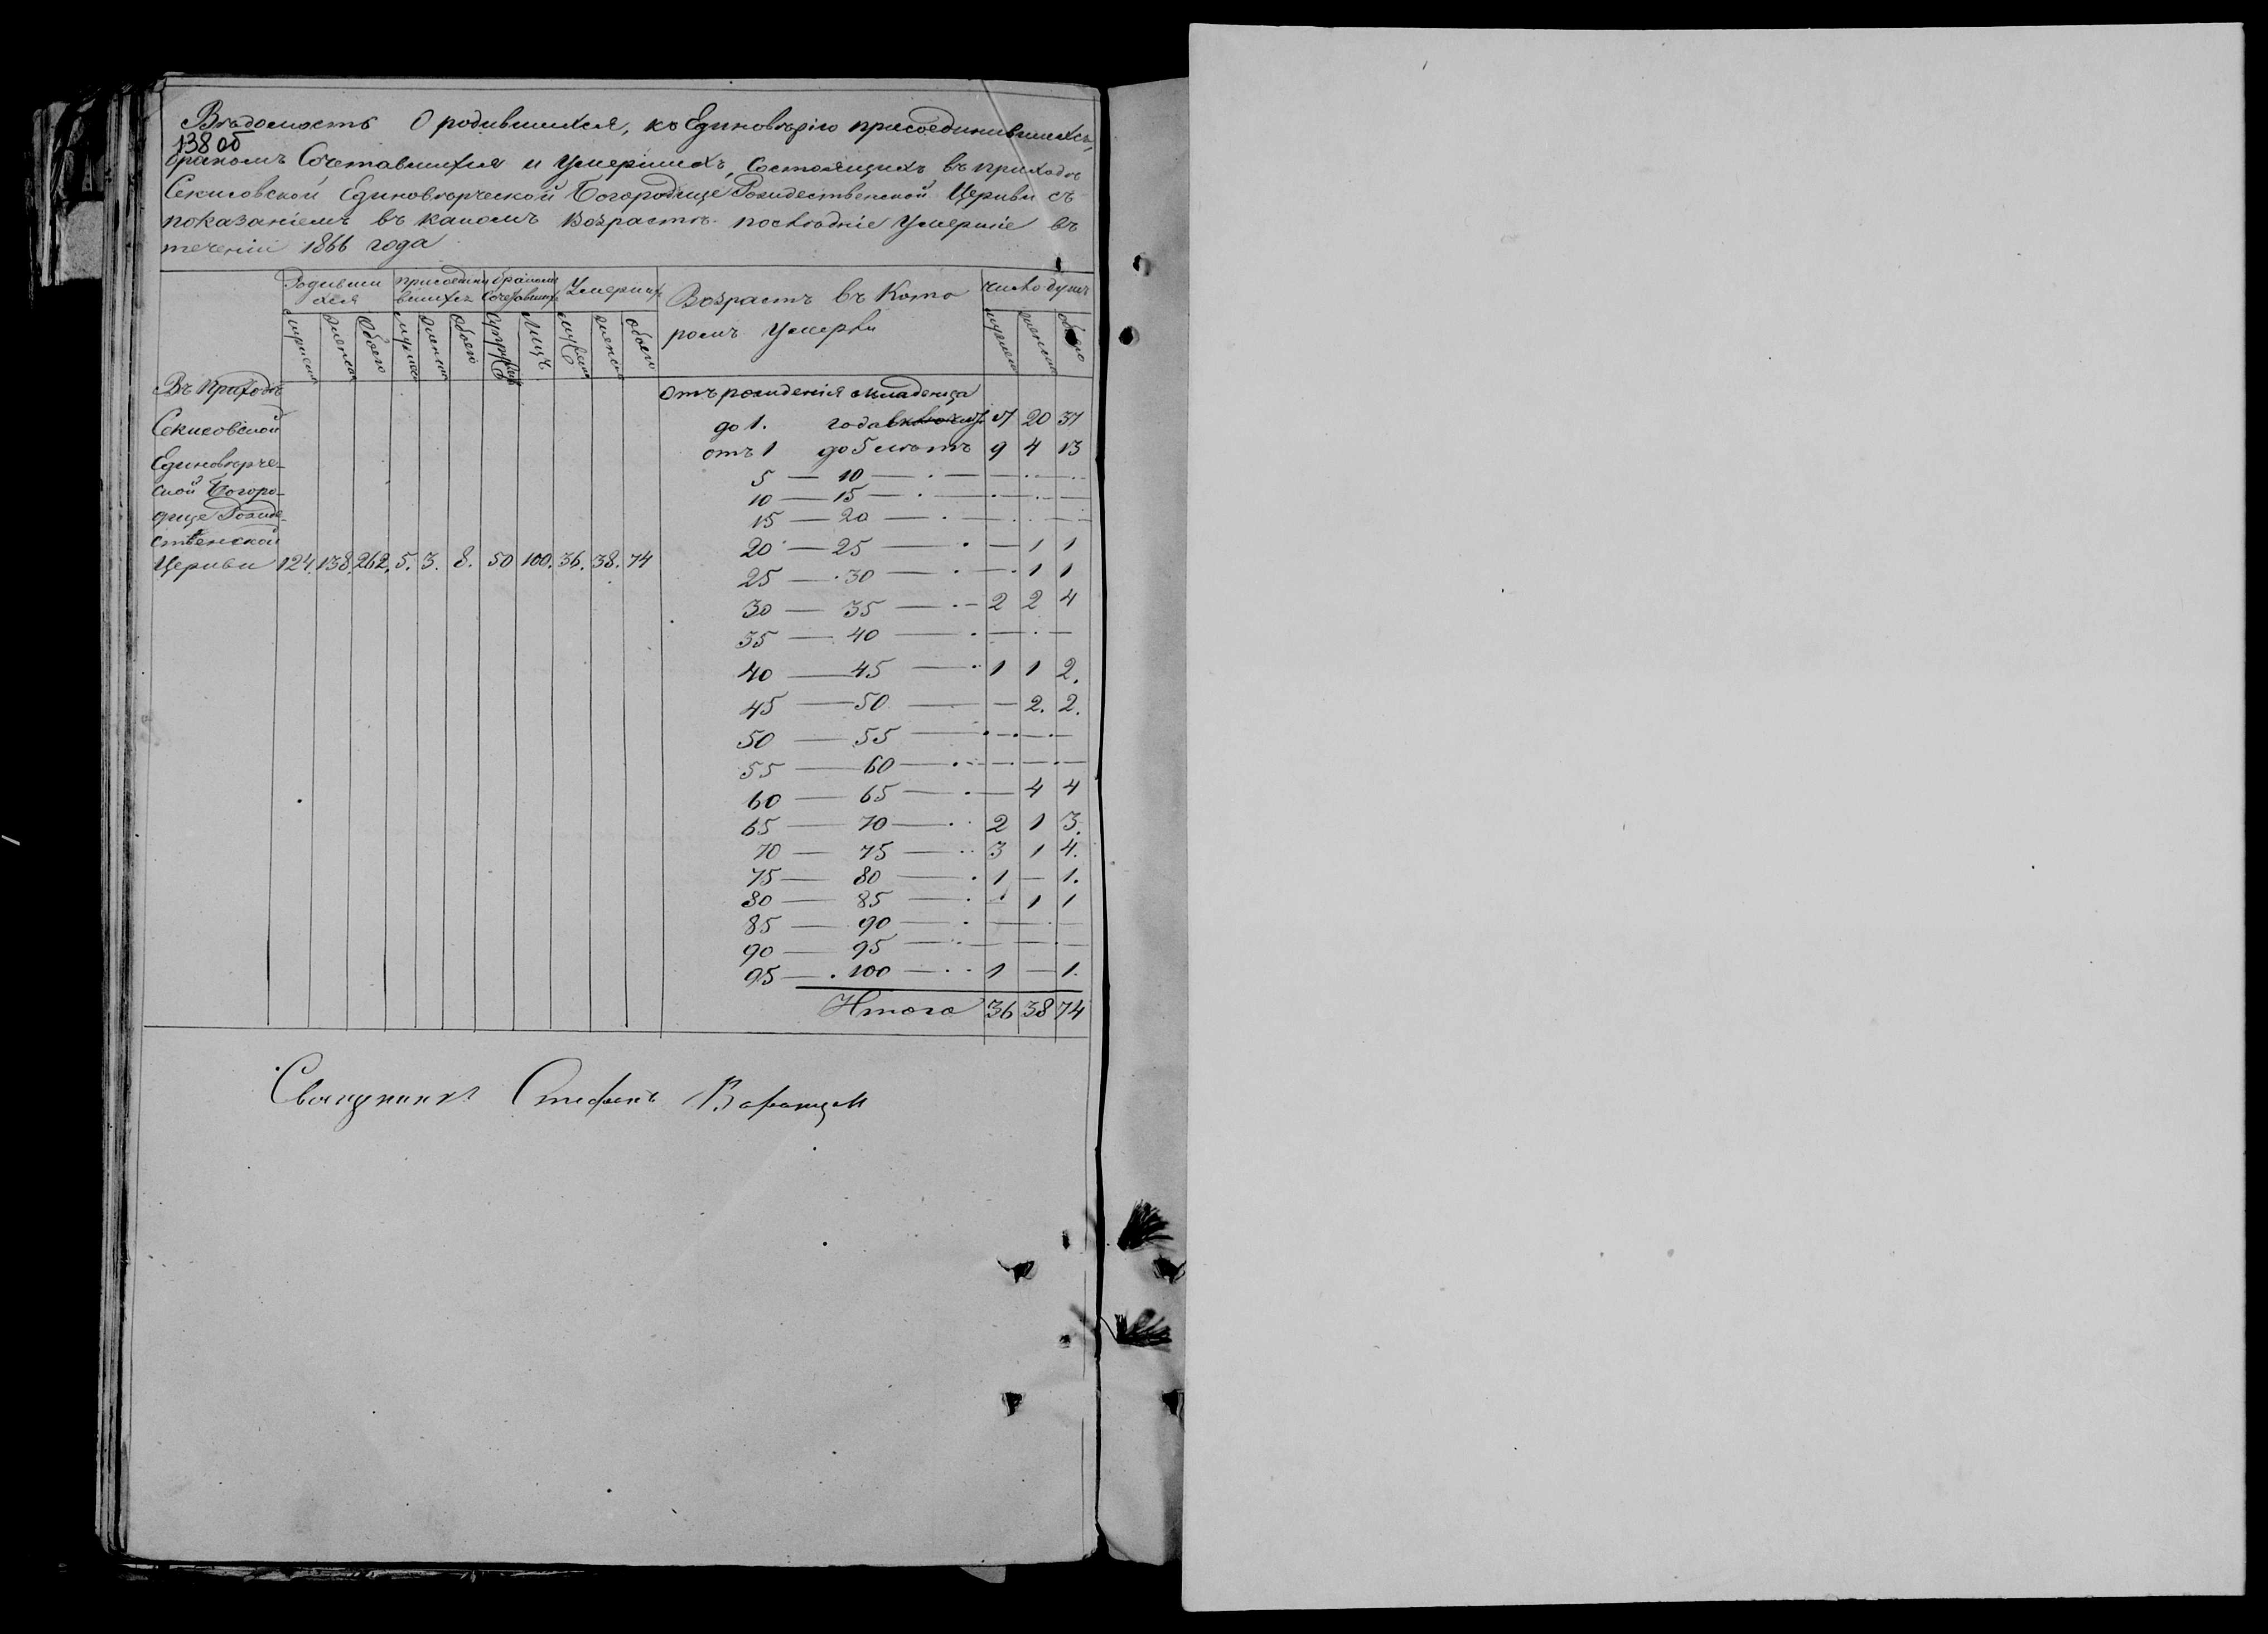 Вѣдомость О родившихся, къ Единовѣрію присоединившихся,
138 об
бракомъ Сочетавшихся и Умершихъ, Состоящихъ въ приходѣ
Секисовской Единовѣрческой Богородице Рождественской Церкви съ
показаніемъ въ какомъ Возрастѣ послѣдніе Умершіе въ
теченіи 1866 года
Родивши присоедини бракомъ Умершихъ Возрастъ въ Кото число душъ
хся вшихся Сочетавшихся ромъ Умерли
мужеска женска Обоего мужеска женска Обоего Супружествъ Лицъ мужеска женска обоего мужеска женска обоего
Въ Приходѣ отъ рожденія младенца
Секисовской до 1. года 17 20 37
Единовѣрче- отъ 1 до 5 лѣтъ 9 4 13
ской Богоро- 5 — 10 — — — —
10 — 15 — — — —
дице Рожде- 15 — 20 — — — —
ственской 20 — 25 — — 1 1
Церкви 124. 138. 262. 5. 3. 8. 50 100. 36. 38. 74
25 — 30 — — 1 1
30 — 35 — 2 2 4
35 — 40 — — — —
40 — 45 — 1 1 2.
45 — 50 — — 2. 2.
50 — 55 — — — —
55 — 60 — — — —
60 — 65 — — 4 4
65 — 70 — 2 1 3.
70 — 75 — 3 1 4.
75 — 80 — 1 — 1.
80 — 85 — — 1 1
85 — 90 — — — —
90 — 95 — — — —
95 — 100 — 1 — 1.
Итого 36 38 74
Священникъ Стефанъ